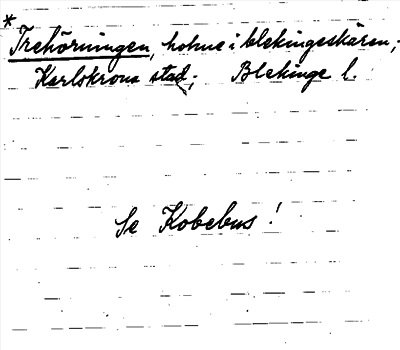 * Trehörningen, holme i blekingeskären;
Karlskrona stad; Blekinge l.
Se Kobebus!